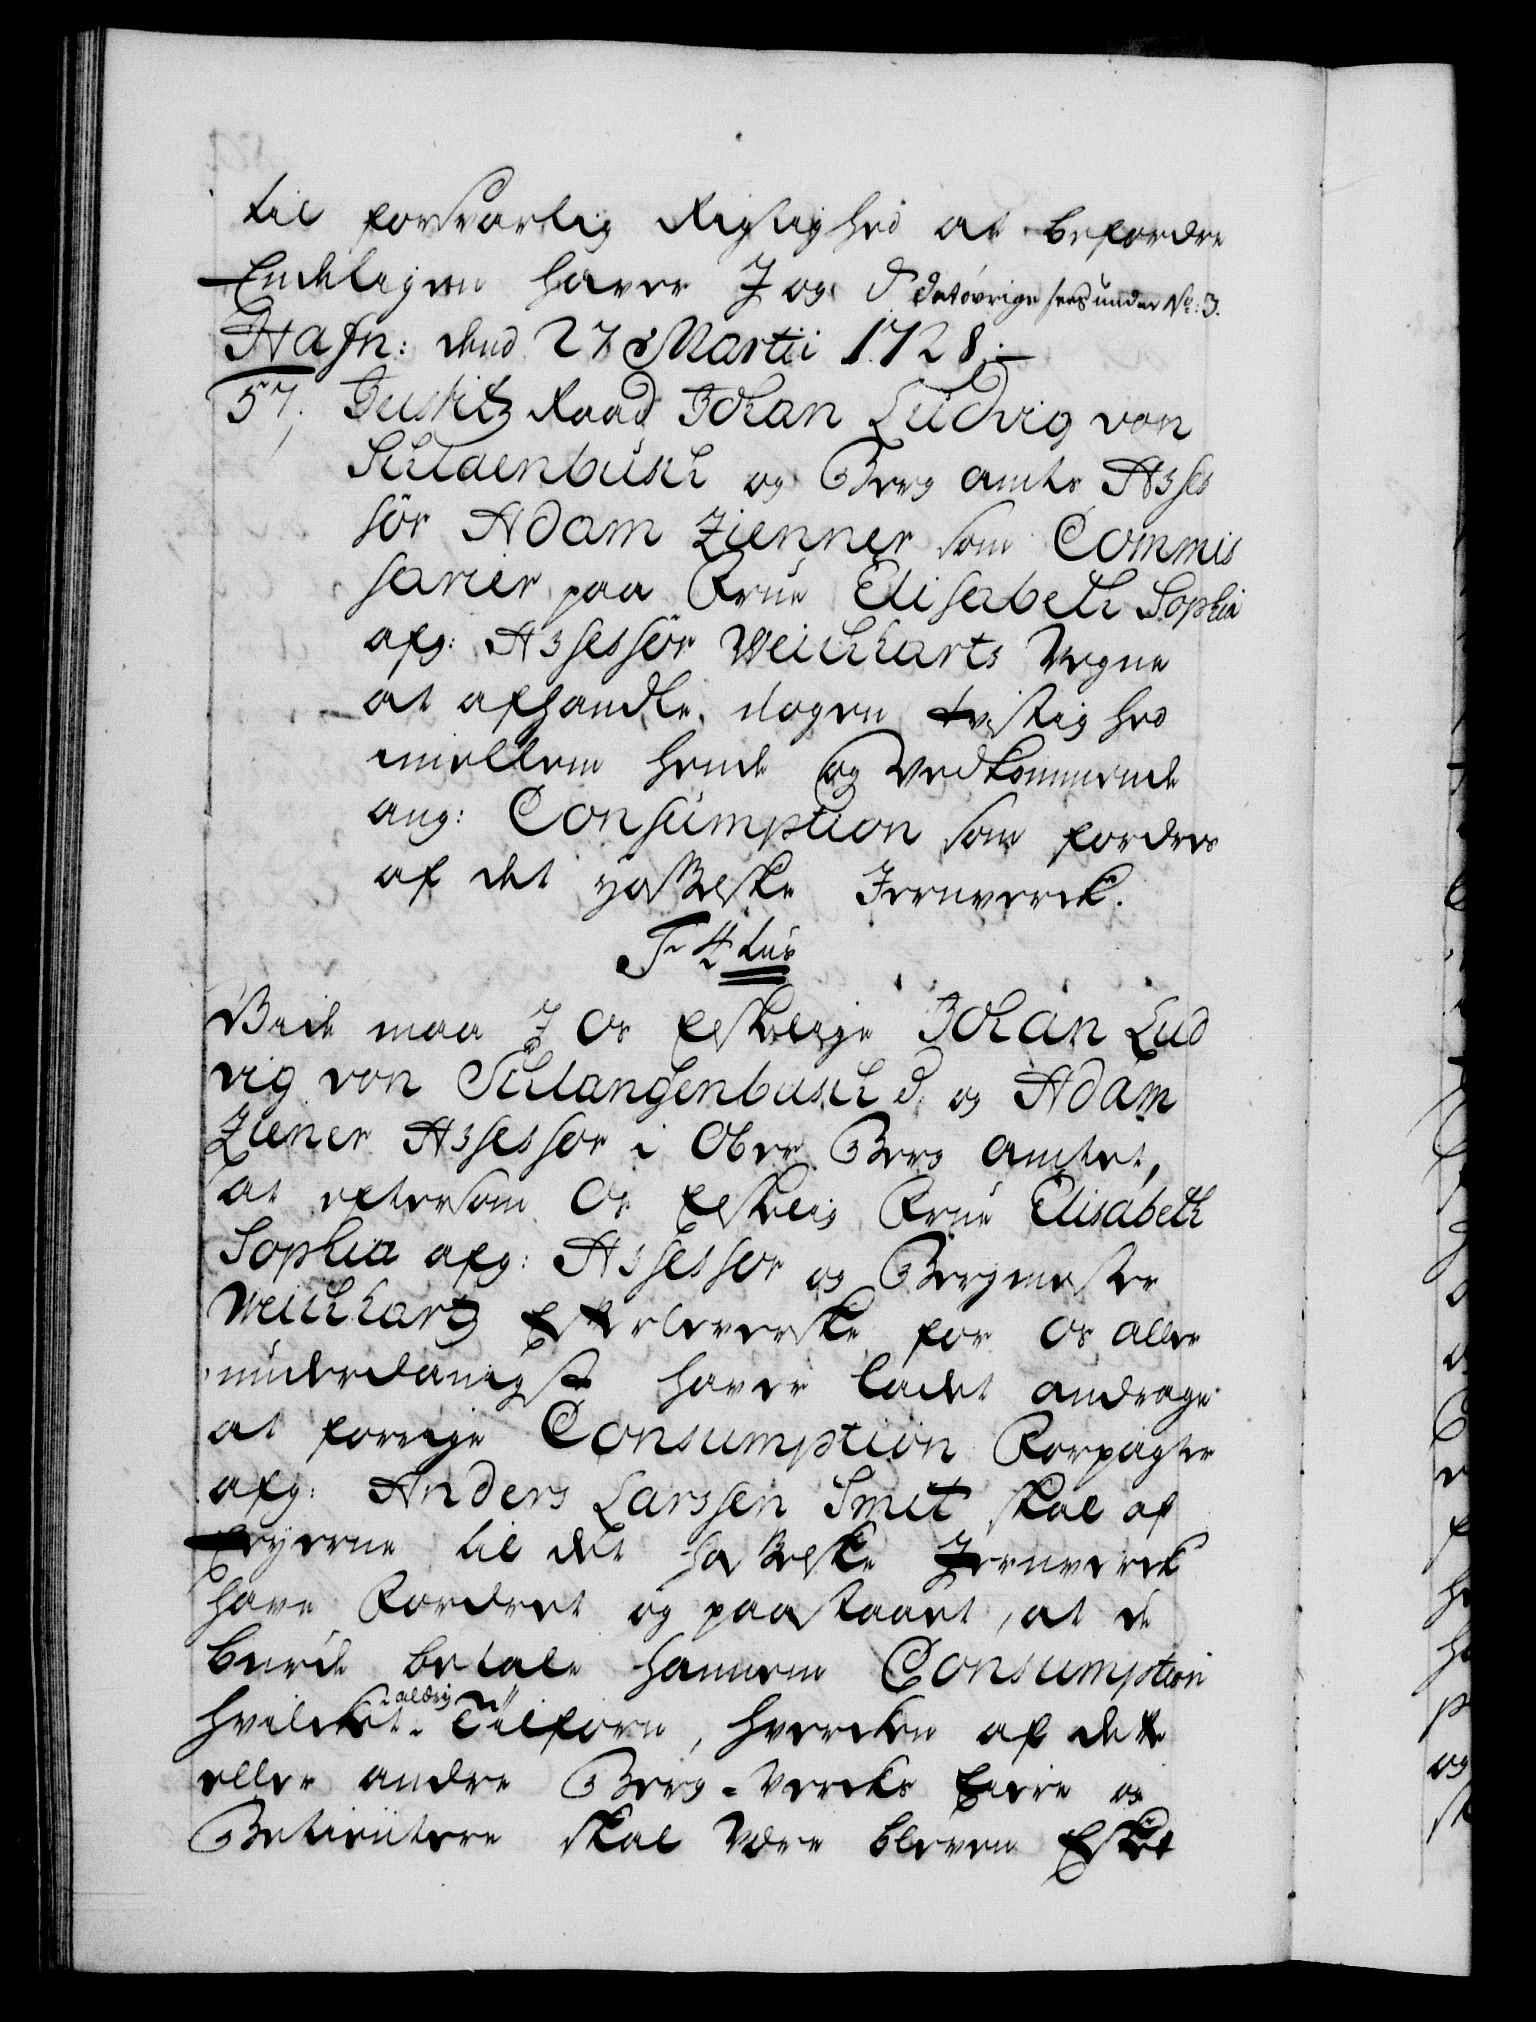 til forsvarlig Rigtighed at befordre
Endeligen haver I og d det övrige sees under No: 3.
Hafn: dend 27 Martii 1728.
57. Justitz Raad Johan Ludvig von
Schlaenbusch og Berg amts Asses
sör Adam Zienner som Commis
sarier paa Frue Elisabeth Sophia
afg: Assessör Weichharts Vegne
at afhandle nogen tvistighed
imellem hende og Vedkommende
ang: Consumption som fordres
af det Hasselske Jernverck.
F 4tus
Viide maa I Os Elskelige Johan Lud
vig von Schlangenbusch d. og Adam
Ziener Assessor i Ober Berg Amtet,
at eftersom Os Elskelig Frue Elisabeth
Sophia afg: Assessor og Bergmester
Weichhartz Efterleverske for Os aller
underdanigst haver ladet andrage
at forrige Consumption Forpagter
afg: Anders Larssen Smit skal af
Eyerne til det Hasselske Jernverck
have Fordret og paastaaet, at de
burde betale hannem Consumption
hvilcket aldrig tilforn, hvercken af dette
eller andre Berg-Vercks Eiere og
Betientere skal være bleven Esket